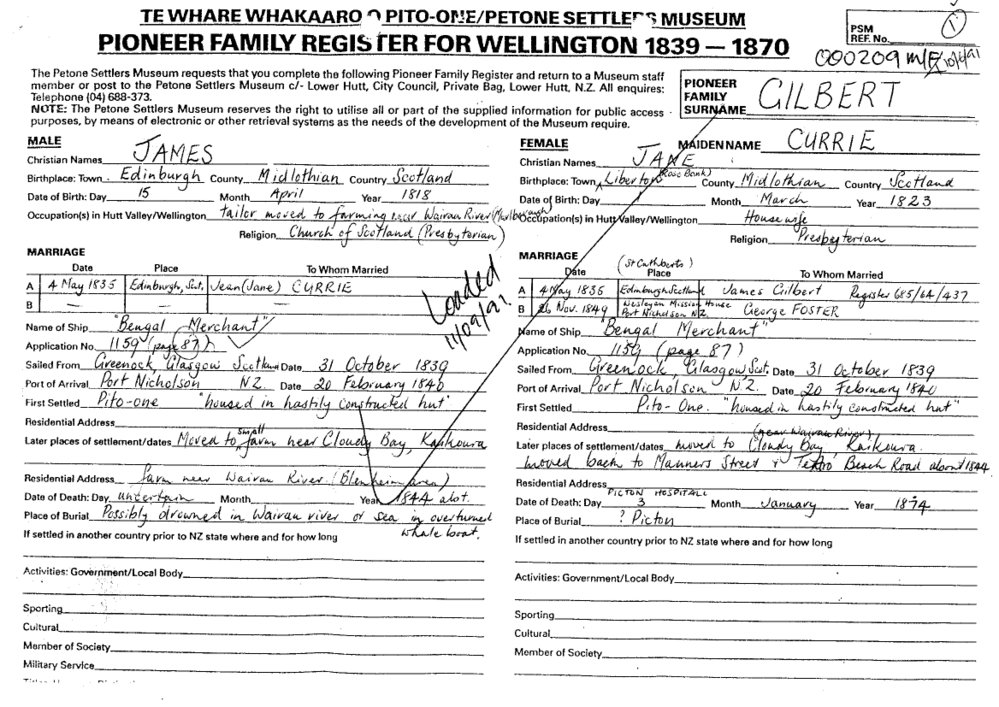 TE WHARE WHAKAARO O PITO-ONE/PETONE SETTLERS MUSEUM
PIONEER FAMILY REGISTER FOR WELLINGTON 1839 — 1870
PSM
REF. No.
1
000209 M/F 10/6/91
The Petone Settlers Museum requests that you complete the following Pioneer Family Register and return to a Museum staff
member or post to the Petone Settlers Museum c/- Lower Hutt, City Council, Private Bag, Lower Hutt, N.Z. All enquires:
Telephone (04) 688-373.
NOTE: The Petone Settlers Museum reserves the right to utilise all or part of the supplied information for public access
purposes, by means of electronic or other retrieval systems as the needs of the development of the Museum require.
PIONEER
FAMILY
SURNAME GILBERT
MALE
Christian Names JAMES
Birthplace: Town Edinburgh County Midlothian Country Scotland
Date of Birth: Day 15 Month April Year 1818
Occupation(s) in Hutt Valley/Wellington tailor moved to farming near Wairau River (Marlborough)
Religion Church of Scotland (Presbyterian)
MARRIAGE
Date Place To Whom Married
A 4 May 1835 Edinburgh, Scot. Jean (Jane) CURRIE
B — —
Loaded
11/09/91
Name of Ship "Bengal Merchant"
Application No. 1159 (page 87)
Sailed From Greenock, Glasgow Scotland Date 31 October 1839
Port of Arrival Port Nicholson NZ. Date 20 February 1840
First Settled Pito-one "housed in hastily constructed hut"
Residential Address
Later places of settlement/dates Moved to small farm near Cloudy Bay, Kaikoura
Residential Address farm near Wairau River (Blenheim area)
Date of Death: Day uncertain Month Year 1844 abt.
Place of Burial Possibly drowned in Wairau river or sea in overturned
whale boat.
If settled in another country prior to NZ state where and for how long
Activities: Government/Local Body
Sporting
Cultural
Member of Society
Military Service
FEMALE MAIDEN NAME CURRIE
Christian Names JANE
Birthplace: Town Liberton (Rose Bank) County Midlothian Country Scotland
Date of Birth: Day Month March Year 1823
Occupation(s) in Hutt Valley/Wellington Housewife
Religion Presbyterian
MARRIAGE (St Cuthberts)
Date Place To Whom Married
A 4 May 1835 Edinburgh Scotland James Gilbert Register 685/6A/437
B 26 Nov. 1849 Wesleyan Mission House
Port Nicholson N.Z. George FOSTER
Name of Ship "Bengal Merchant"
Application No. 1159 (page 87)
Sailed From Greenock, Glasgow Scot. Date 31 October 1839
Port of Arrival Port Nicholson NZ. Date 20 February 1840
First Settled Pito-One. "housed in hastily constructed hut"
Residential Address
(near Wairau River)
Later places of settlement/dates moved to Cloudy Bay, Kaikoura.
moved back to Manners Street & Beach Road about 1844
Residential Address
PICTON HOSPITAL
Date of Death: Day 3 Month January Year 1874
Place of Burial ? Picton
If settled in another country prior to NZ state where and for how long
Activities: Government/Local Body
Sporting
Cultural
Member of Society